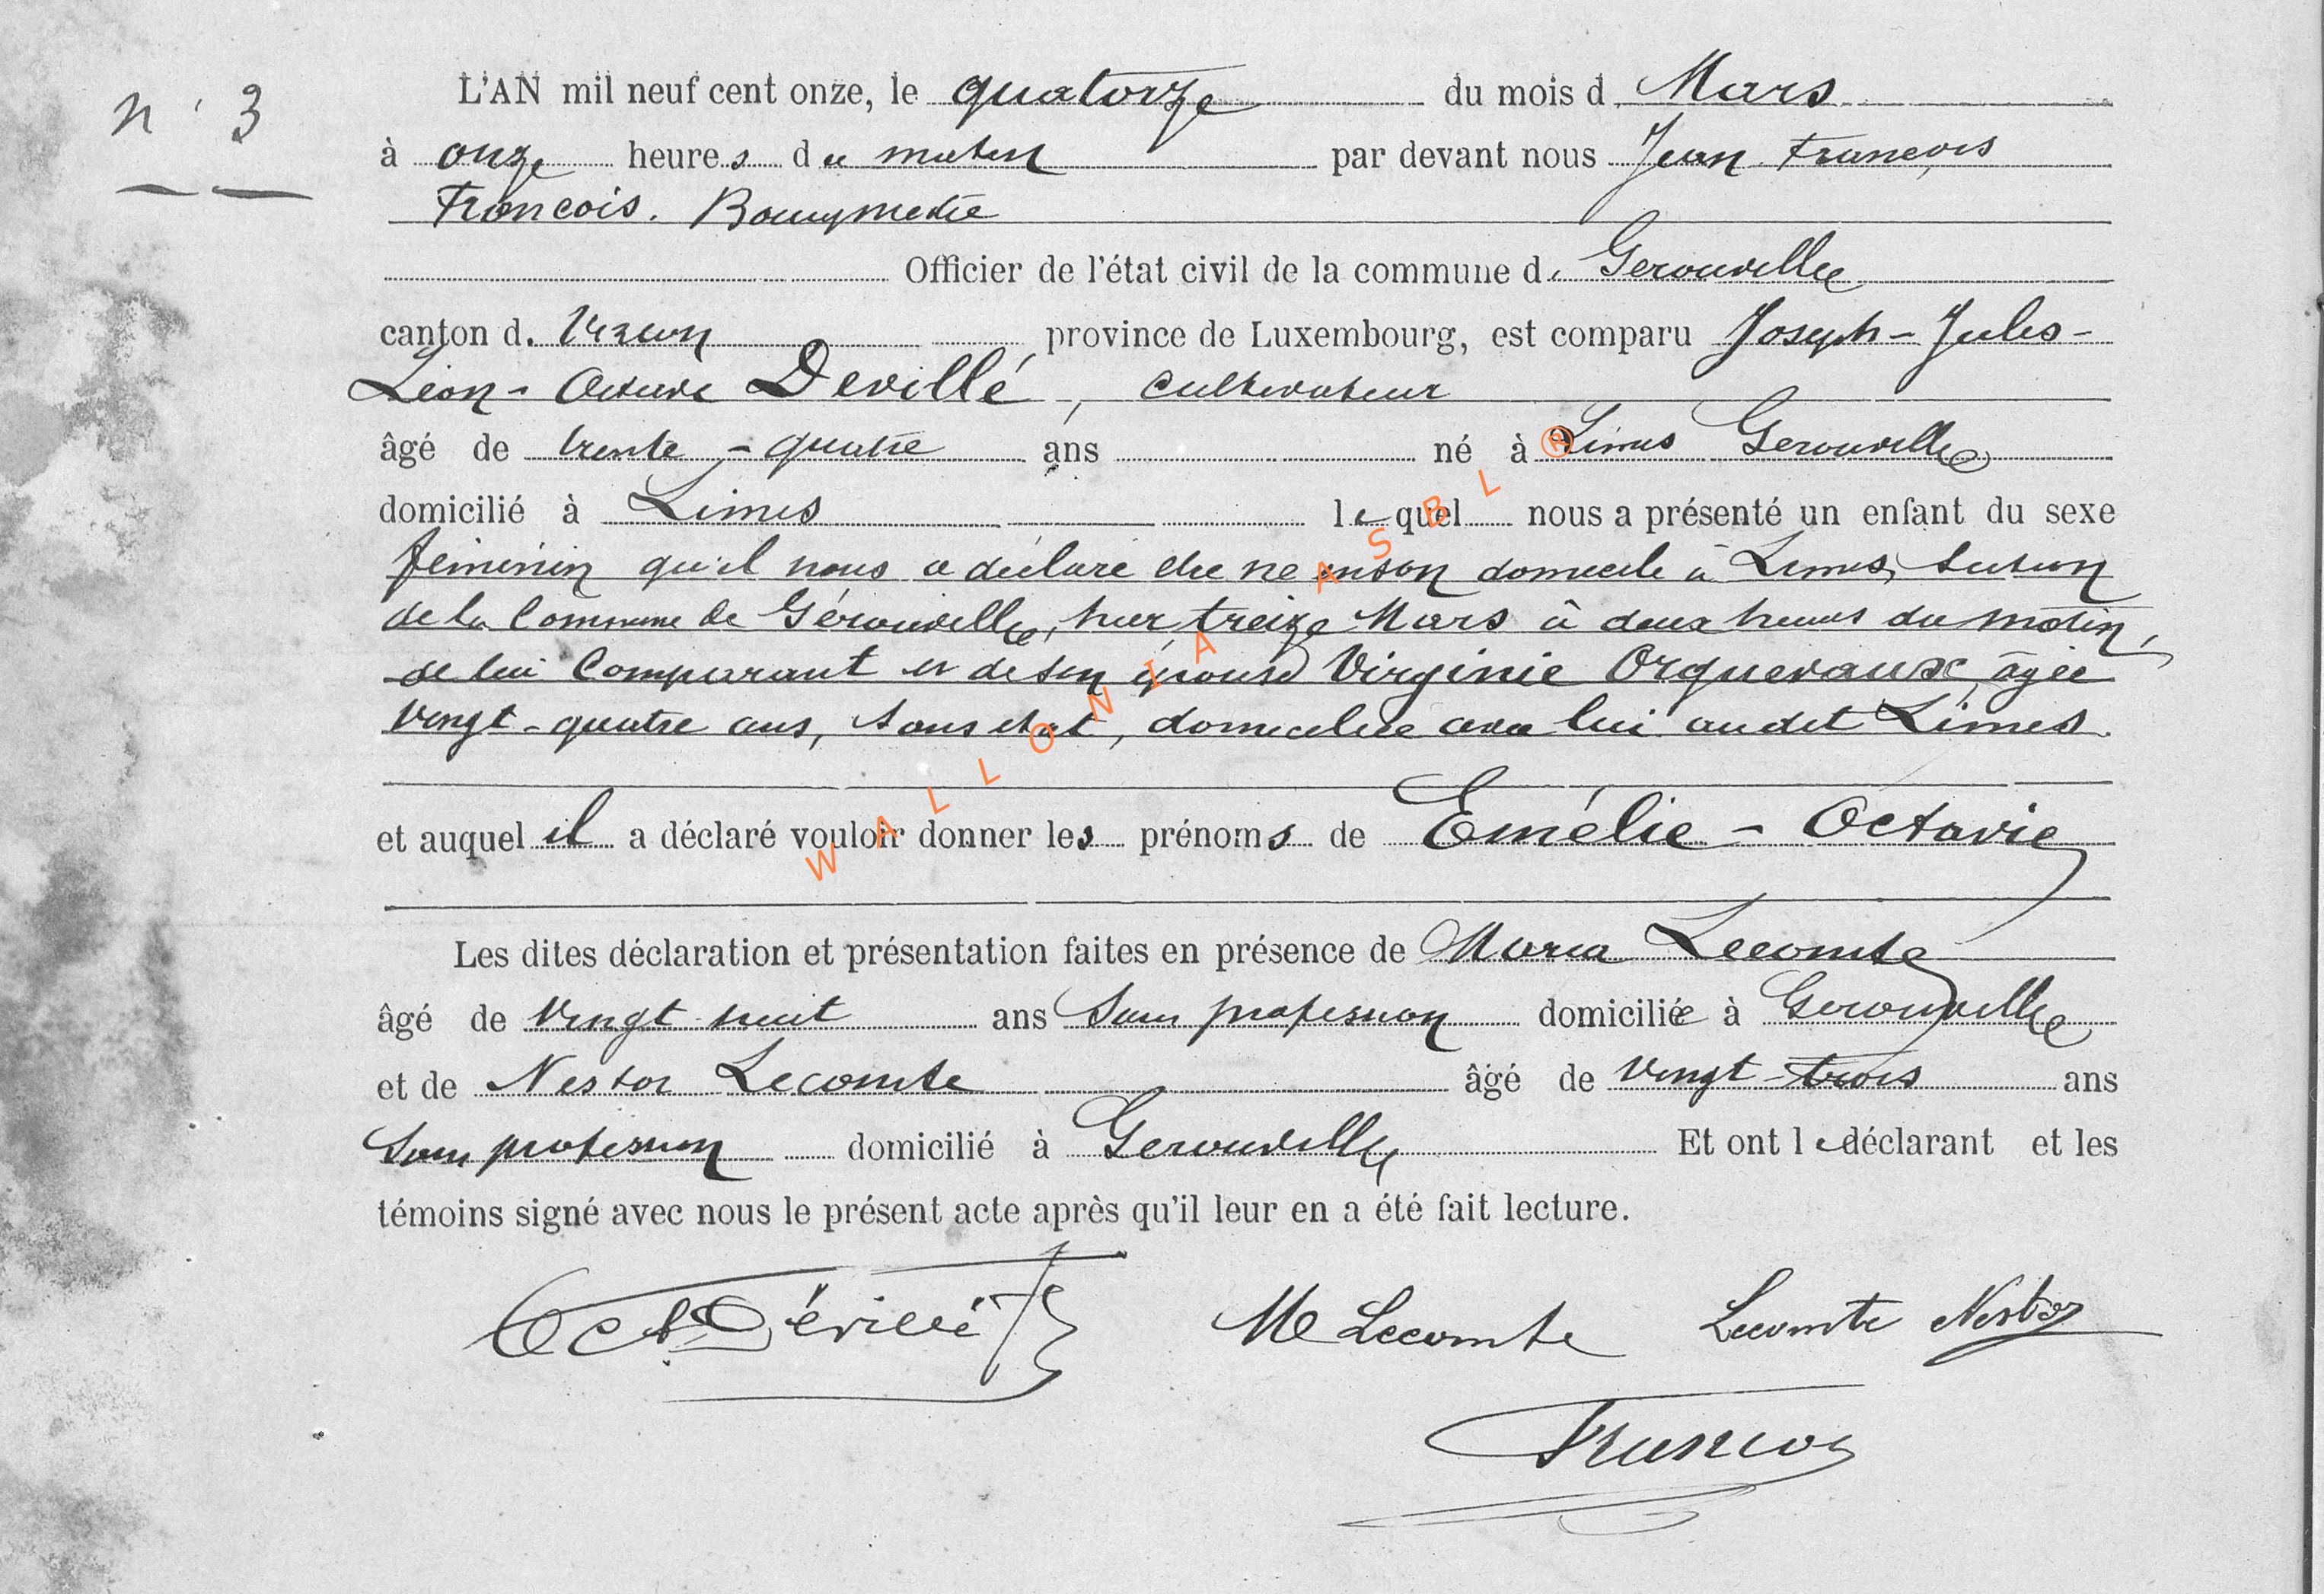 n° 3
L'AN mil neuf cent onze, le quatorze du mois d Mars
à onze heures du matin par devant nous Jean François
François. Bourgmestre
Officier de l'état civil de la commune d. Gerouville
canton d. Virton province de Luxembourg, est comparu Joseph-Jules-
Léon-Octave Devillé, cultivateur
âgé de trente-quatre ans né à Limes Gerouville
domicilié à Limes lequel nous a présenté un enfant du sexe
féminin qu'il nous a déclaré être né en son domicile à Limes, section
de la Commune de Gérouville, hier treize Mars à deux heures du matin,
de lui Comparant et de son épouse Virginie Orquevaux, âgée
vingt-quatre ans, sans état, domiciliée avec lui audit Limes.
et auquel il a déclaré vouloir donner les prénoms de Emélie-Octavie
Les dites déclaration et présentation faites en présence de Maria Lecomte
âgé de vingt huit ans Sans profession domiciliée à Gerouville
et de Nestor Lecomte âgé de vingt-trois ans
Sans profession domicilié à Gerouville Et ont le déclarant et les
témoins signé avec nous le présent acte après qu'il leur en a été fait lecture.
Oct Dévillé M Lecomte Lecomte Nestor
François
WALLONIA ASBL ®